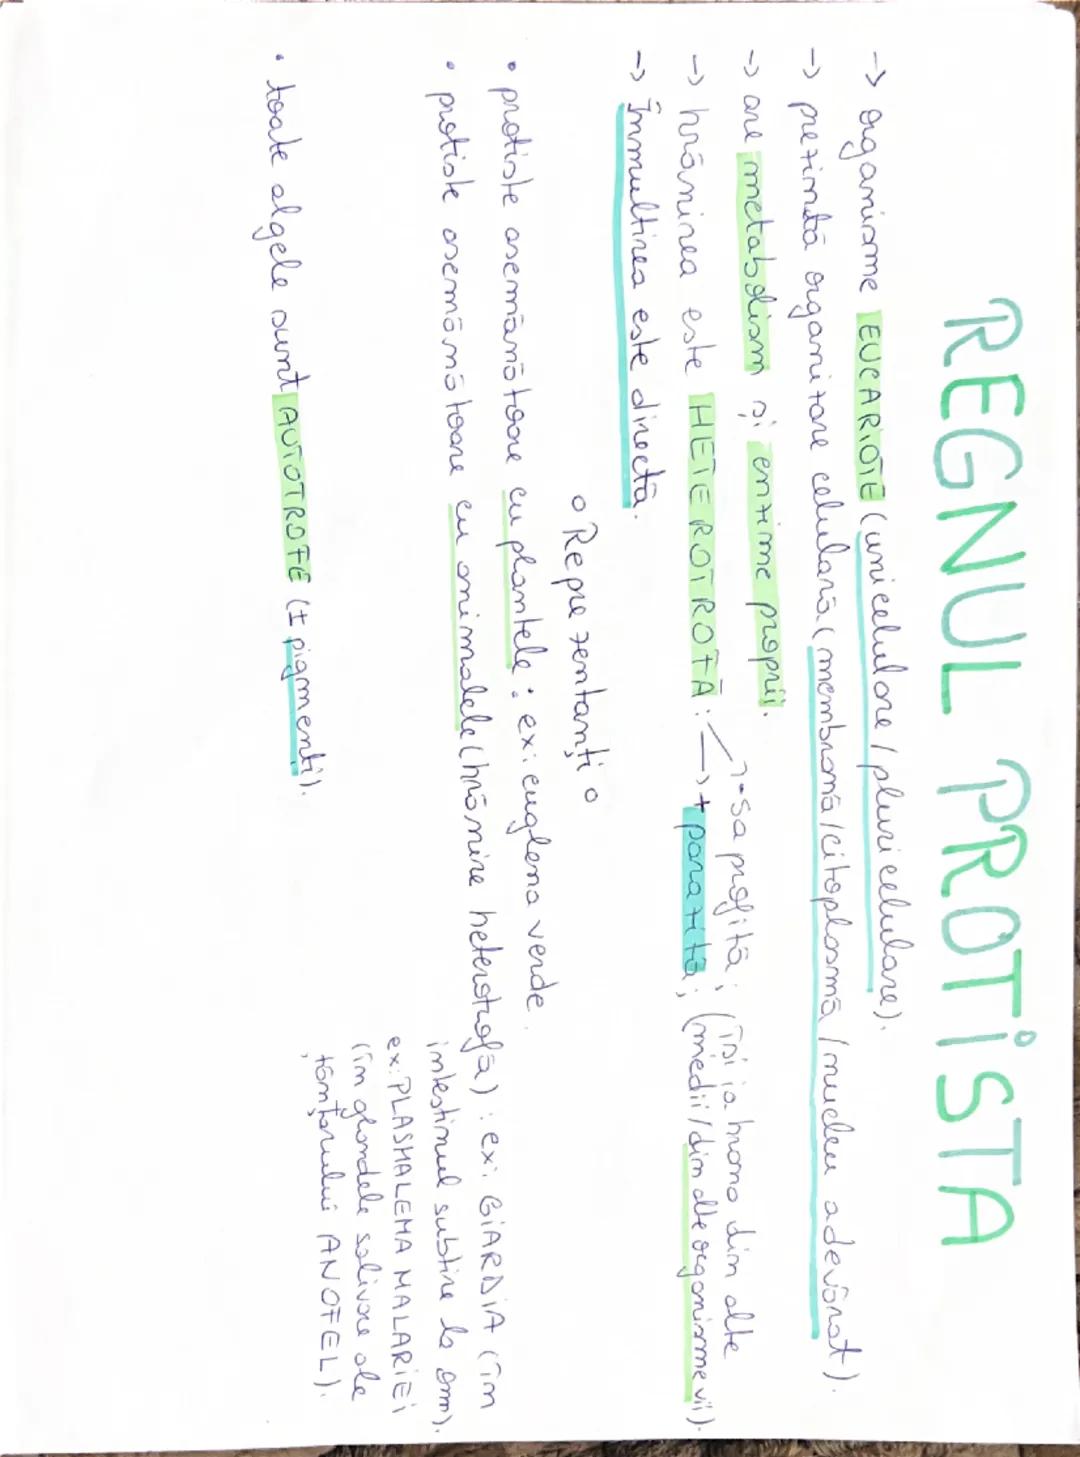 REGNUL PROTISTA
-> organisme EUCARIOTE (unicelulare/pluricelulare).
-> prezintă organizare celulară (membrană/citoplasmă/nucleu adevărat).
-> are metabolism și enzime proprii.
-> hrănirea este HETEROTROFĂ: -> - saprofită; (își ia hrana din alte
-> + parazită; (medii/din alte organisme vii).
-> Înmulțirea este directă.
° Reprezentanți °
• protiste asemănătoare cu plantele: ex: euglena verde.
• protiste asemănătoare cu animalele (hrănire heterotrofă): ex: GIARDIA (în
intestinul subțire la om).
ex: PLASMALEMA MALARIEI
(în glandele salivare ale
țânțarului ANOFEL).
• toate algele sunt AUTOTROFE (± pigmenți).